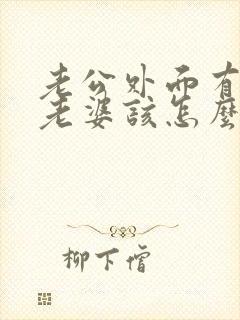 老公外面有
老婆該怎麼
柳下僧